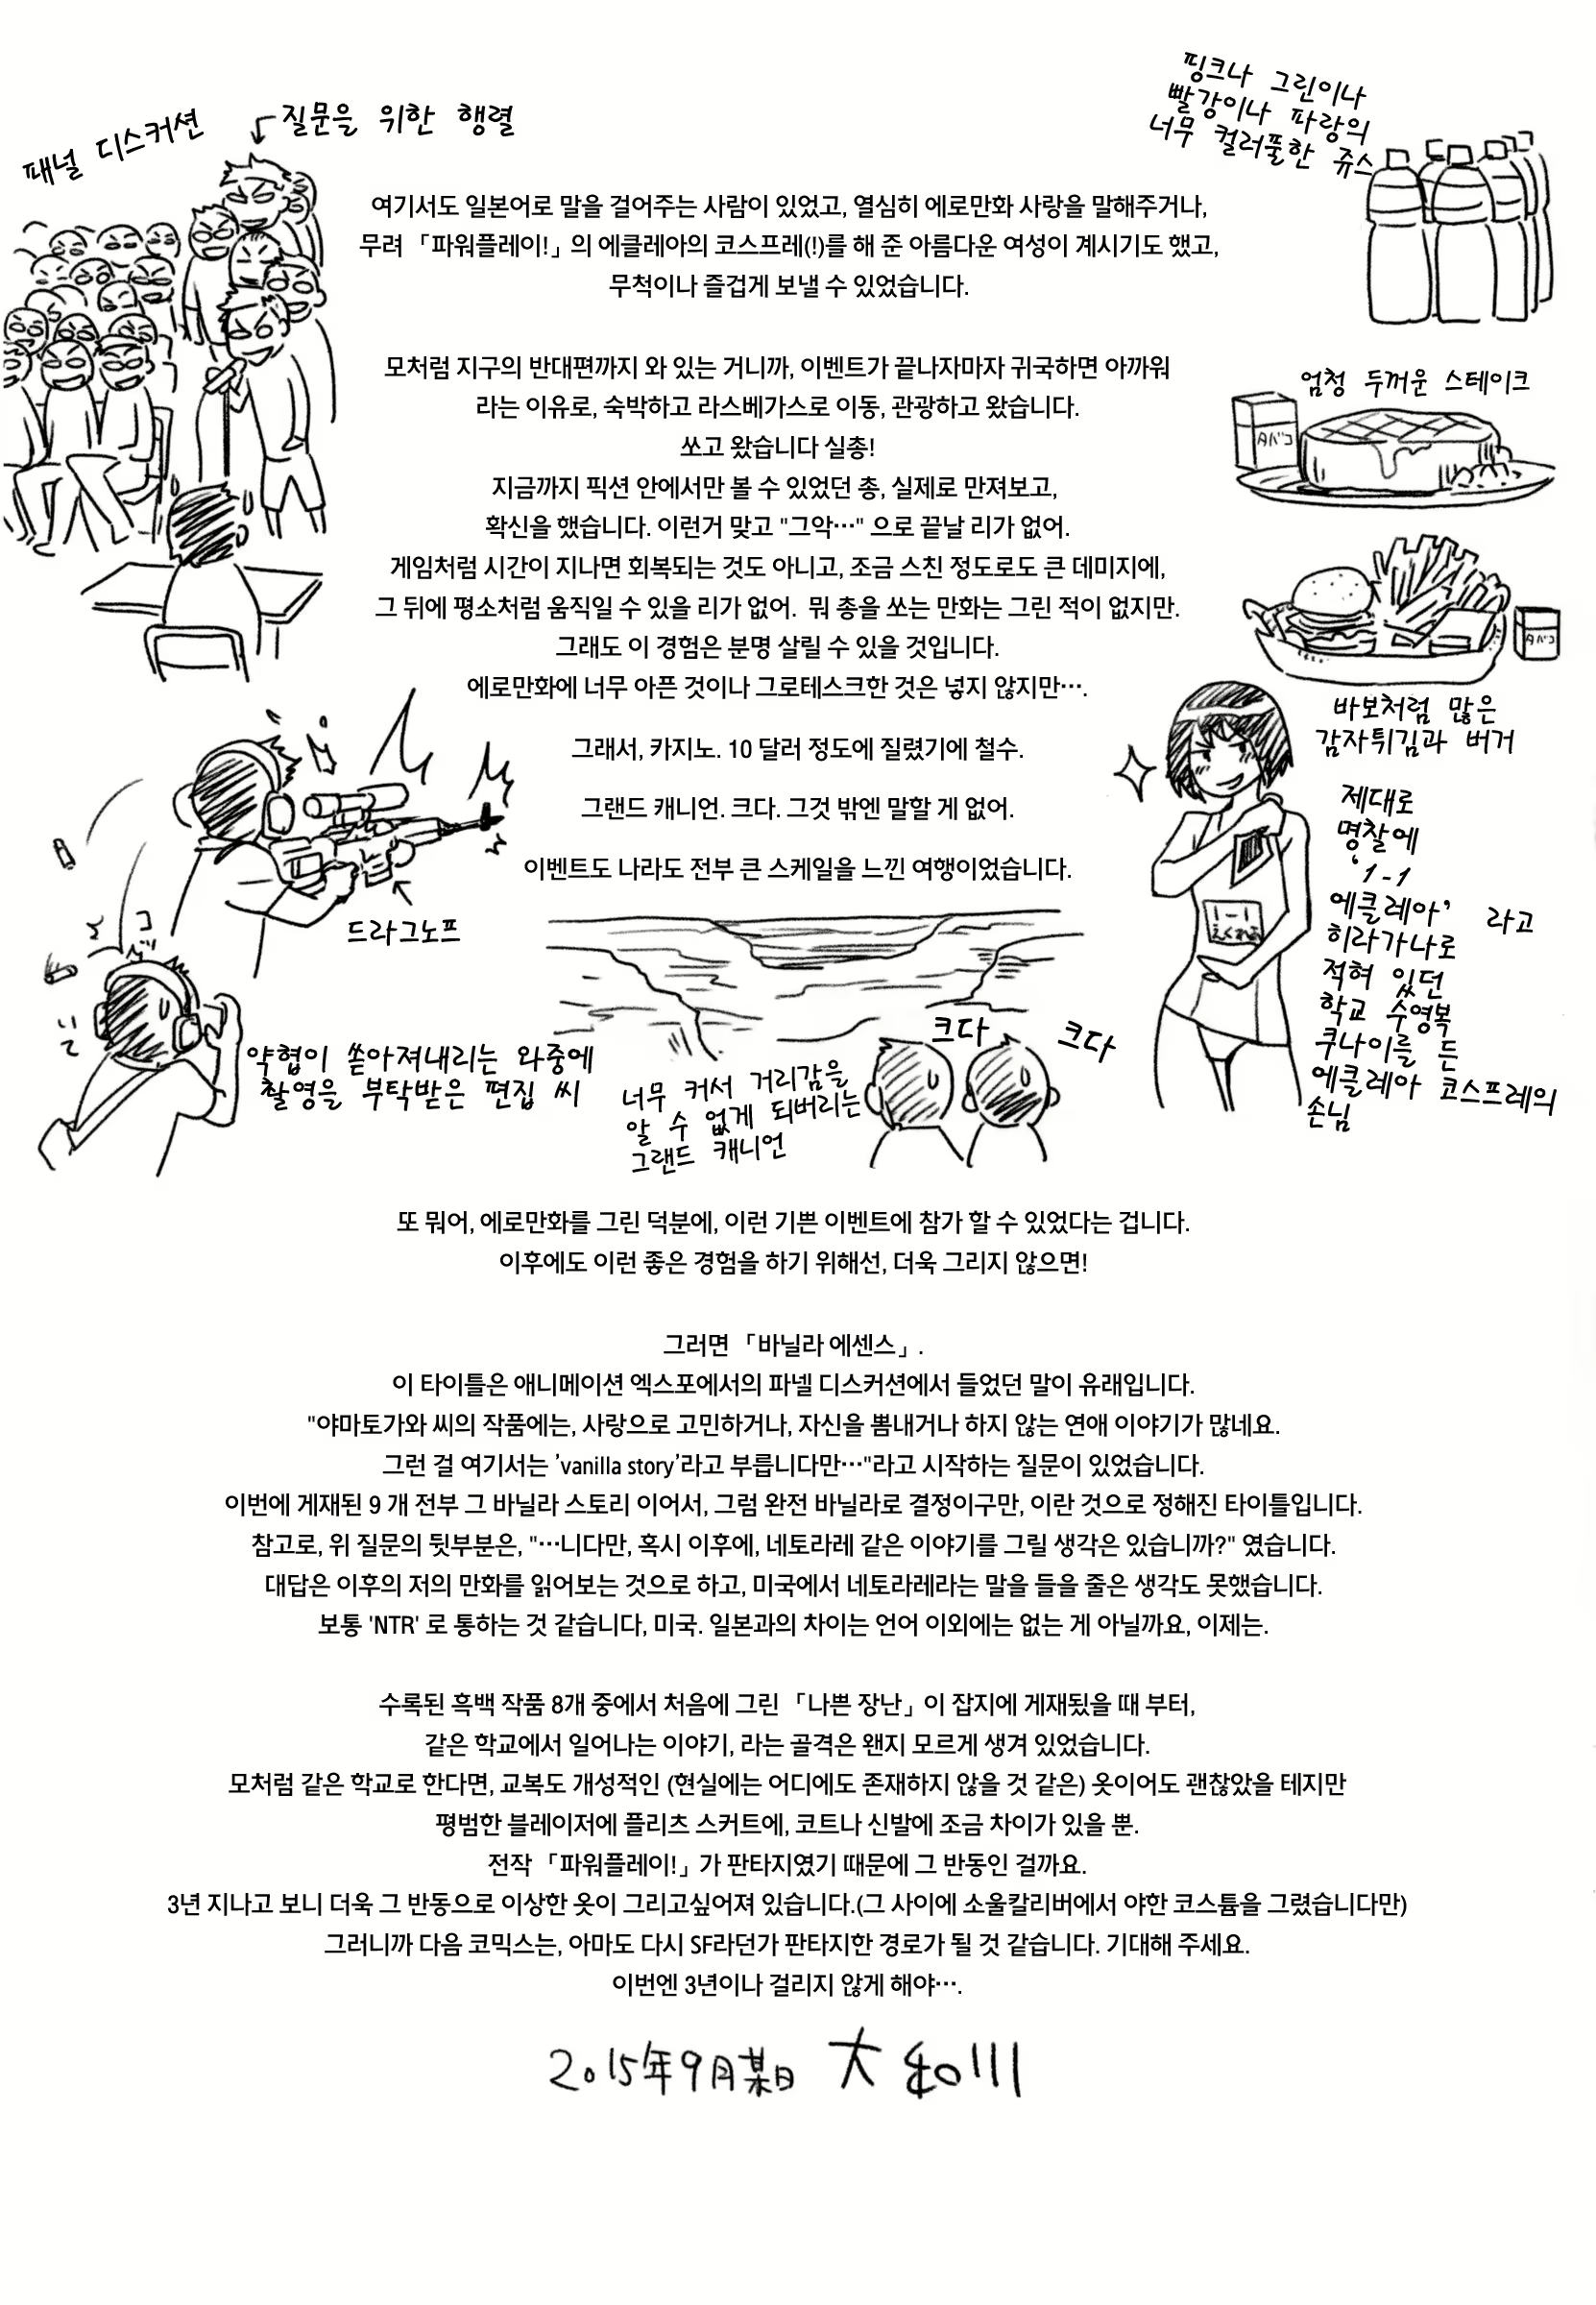 패널 디스커션
질문을 위한 행렬
핑크나 그린이나
빨강이나 파랑의
너무 컬러풀한 쥬스
여기서도 일본어로 말을 걸어주는 사람이 있었고, 열심히 에로만화 사랑을 말해주거나,
무려 「파워플레이!」의 에클레아의 코스프레(!)를 해 준 아름다운 여성이 계시기도 했고,
무척이나 즐겁게 보낼 수 있었습니다.
모처럼 지구의 반대편까지 와 있는 거니까, 이벤트가 끝나자마자 귀국하면 아까워
라는 이유로, 숙박하고 라스베가스로 이동, 관광하고 왔습니다.
쏘고 왔습니다 실총!
지금까지 픽션 안에서만 볼 수 있었던 총, 실제로 만져보고,
확신을 했습니다. 이런거 맞고 "그악…" 으로 끝날 리가 없어.
게임처럼 시간이 지나면 회복되는 것도 아니고, 조금 스친 정도로도 큰 데미지에,
그 뒤에 평소처럼 움직일 수 있을 리가 없어. 뭐 총을 쏘는 만화는 그린 적이 없지만.
그래도 이 경험은 분명 살릴 수 있을 것입니다.
에로만화에 너무 아픈 것이나 그로테스크한 것은 넣지 않지만….
엄청 두꺼운 스테이크
タバコ
タバコ
바보처럼 많은
감자튀김과 버거
그래서, 카지노. 10 달러 정도에 질렸기에 철수.
그랜드 캐니언. 크다. 그것 밖엔 말할 게 없어.
이벤트도 나라도 전부 큰 스케일을 느낀 여행이었습니다.
드라그노프
약협이 쏟아져내리는 와중에
촬영을 부탁받은 편집 씨
크다
크다
너무 커서 거리감을
알 수 없게 되버리는
그랜드 캐니언
1-1
えくれあ
제대로
명찰에
'1-1
에클레아' 라고
히라가나로
적혀 있던
학교 수영복
쿠나이를 든
에클레아 코스프레의
손님
또 뭐어, 에로만화를 그린 덕분에, 이런 기쁜 이벤트에 참가 할 수 있었다는 겁니다.
이후에도 이런 좋은 경험을 하기 위해선, 더욱 그리지 않으면!
그러면 「바닐라 에센스」.
이 타이틀은 애니메이션 엑스포에서의 파넬 디스커션에서 들었던 말이 유래입니다.
"야마토가와 씨의 작품에는, 사랑으로 고민하거나, 자신을 뽐내거나 하지 않는 연애 이야기가 많네요.
그런 걸 여기서는 'vanilla story'라고 부릅니다만…"라고 시작하는 질문이 있었습니다.
이번에 게재된 9 개 전부 그 바닐라 스토리 이어서, 그럼 완전 바닐라로 결정이구만, 이란 것으로 정해진 타이틀입니다.
참고로, 위 질문의 뒷부분은, "…니다만, 혹시 이후에, 네토라레 같은 이야기를 그릴 생각은 있습니까?" 였습니다.
대답은 이후의 저의 만화를 읽어보는 것으로 하고, 미국에서 네토라레라는 말을 들을 줄은 생각도 못했습니다.
보통 'NTR' 로 통하는 것 같습니다, 미국. 일본과의 차이는 언어 이외에는 없는 게 아닐까요, 이제는.
수록된 흑백 작품 8개 중에서 처음에 그린 「나쁜 장난」이 잡지에 게재됬을 때 부터,
같은 학교에서 일어나는 이야기, 라는 골격은 왠지 모르게 생겨 있었습니다.
모처럼 같은 학교로 한다면, 교복도 개성적인 (현실에는 어디에도 존재하지 않을 것 같은) 옷이어도 괜찮았을 테지만
평범한 블레이저에 플리츠 스커트에, 코트나 신발에 조금 차이가 있을 뿐.
전작 「파워플레이!」가 판타지였기 때문에 그 반동인 걸까요.
3년 지나고 보니 더욱 그 반동으로 이상한 옷이 그리고싶어져 있습니다.(그 사이에 소울칼리버에서 야한 코스튬을 그렸습니다만)
그러니까 다음 코믹스는, 아마도 다시 SF라던가 판타지한 경로가 될 것 같습니다. 기대해 주세요.
이번엔 3년이나 걸리지 않게 해야….
2015年9月某日 大和川